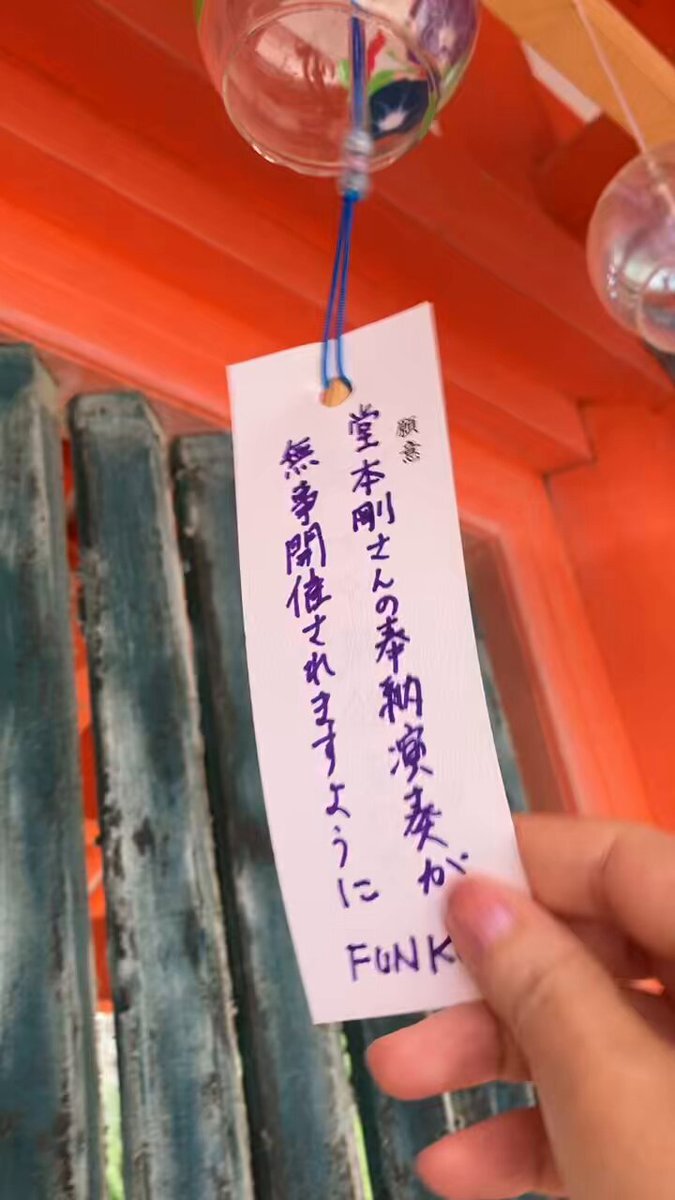 願意
堂本剛さんの奉納演奏が
無事開催されますように